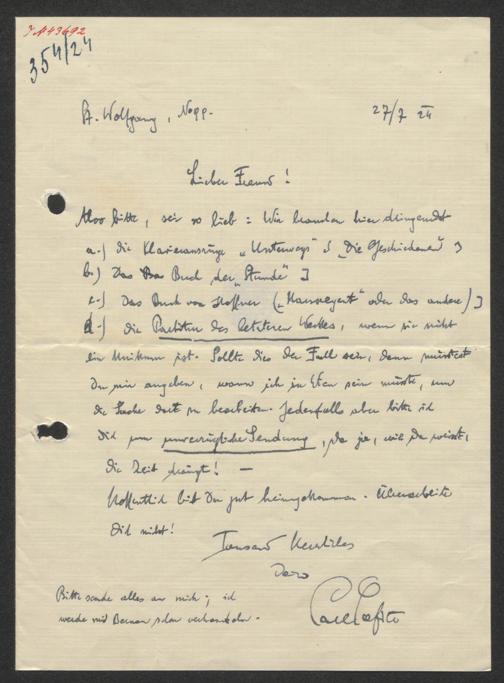 354/24
St. Wolfgang, Nopp.
27/7 24
Lieber Freund!
Also bitte, sei so lieb: Wir brauchen hier dringendst
a.) die Klavierauszüge „Unterwegs“ & „Die Geschiedene“
b.) Das Buch der „Stunde“
c.) Das Buch von Steffan („ “ oder das andere)
d.) die Partitur des letzteren Werkes, wenn sie nicht
ein Unikum ist. Sollte dies der Fall sein, dann müsstest
Du mir angeben, wann ich in Wien sein müsste, um
die Sache dort zu bearbeiten. Jedenfalls aber bitte ich
Dich um unverzügliche Sendung, da ja, wie Du weisst,
die Zeit drängt! —
Hoffentlich bist Du gut heimgekommen. Überarbeite
Dich nicht!
Tausend Herzliches
Dein
Bitte sende alles an mich; ich
werde mit schon verhandeln.